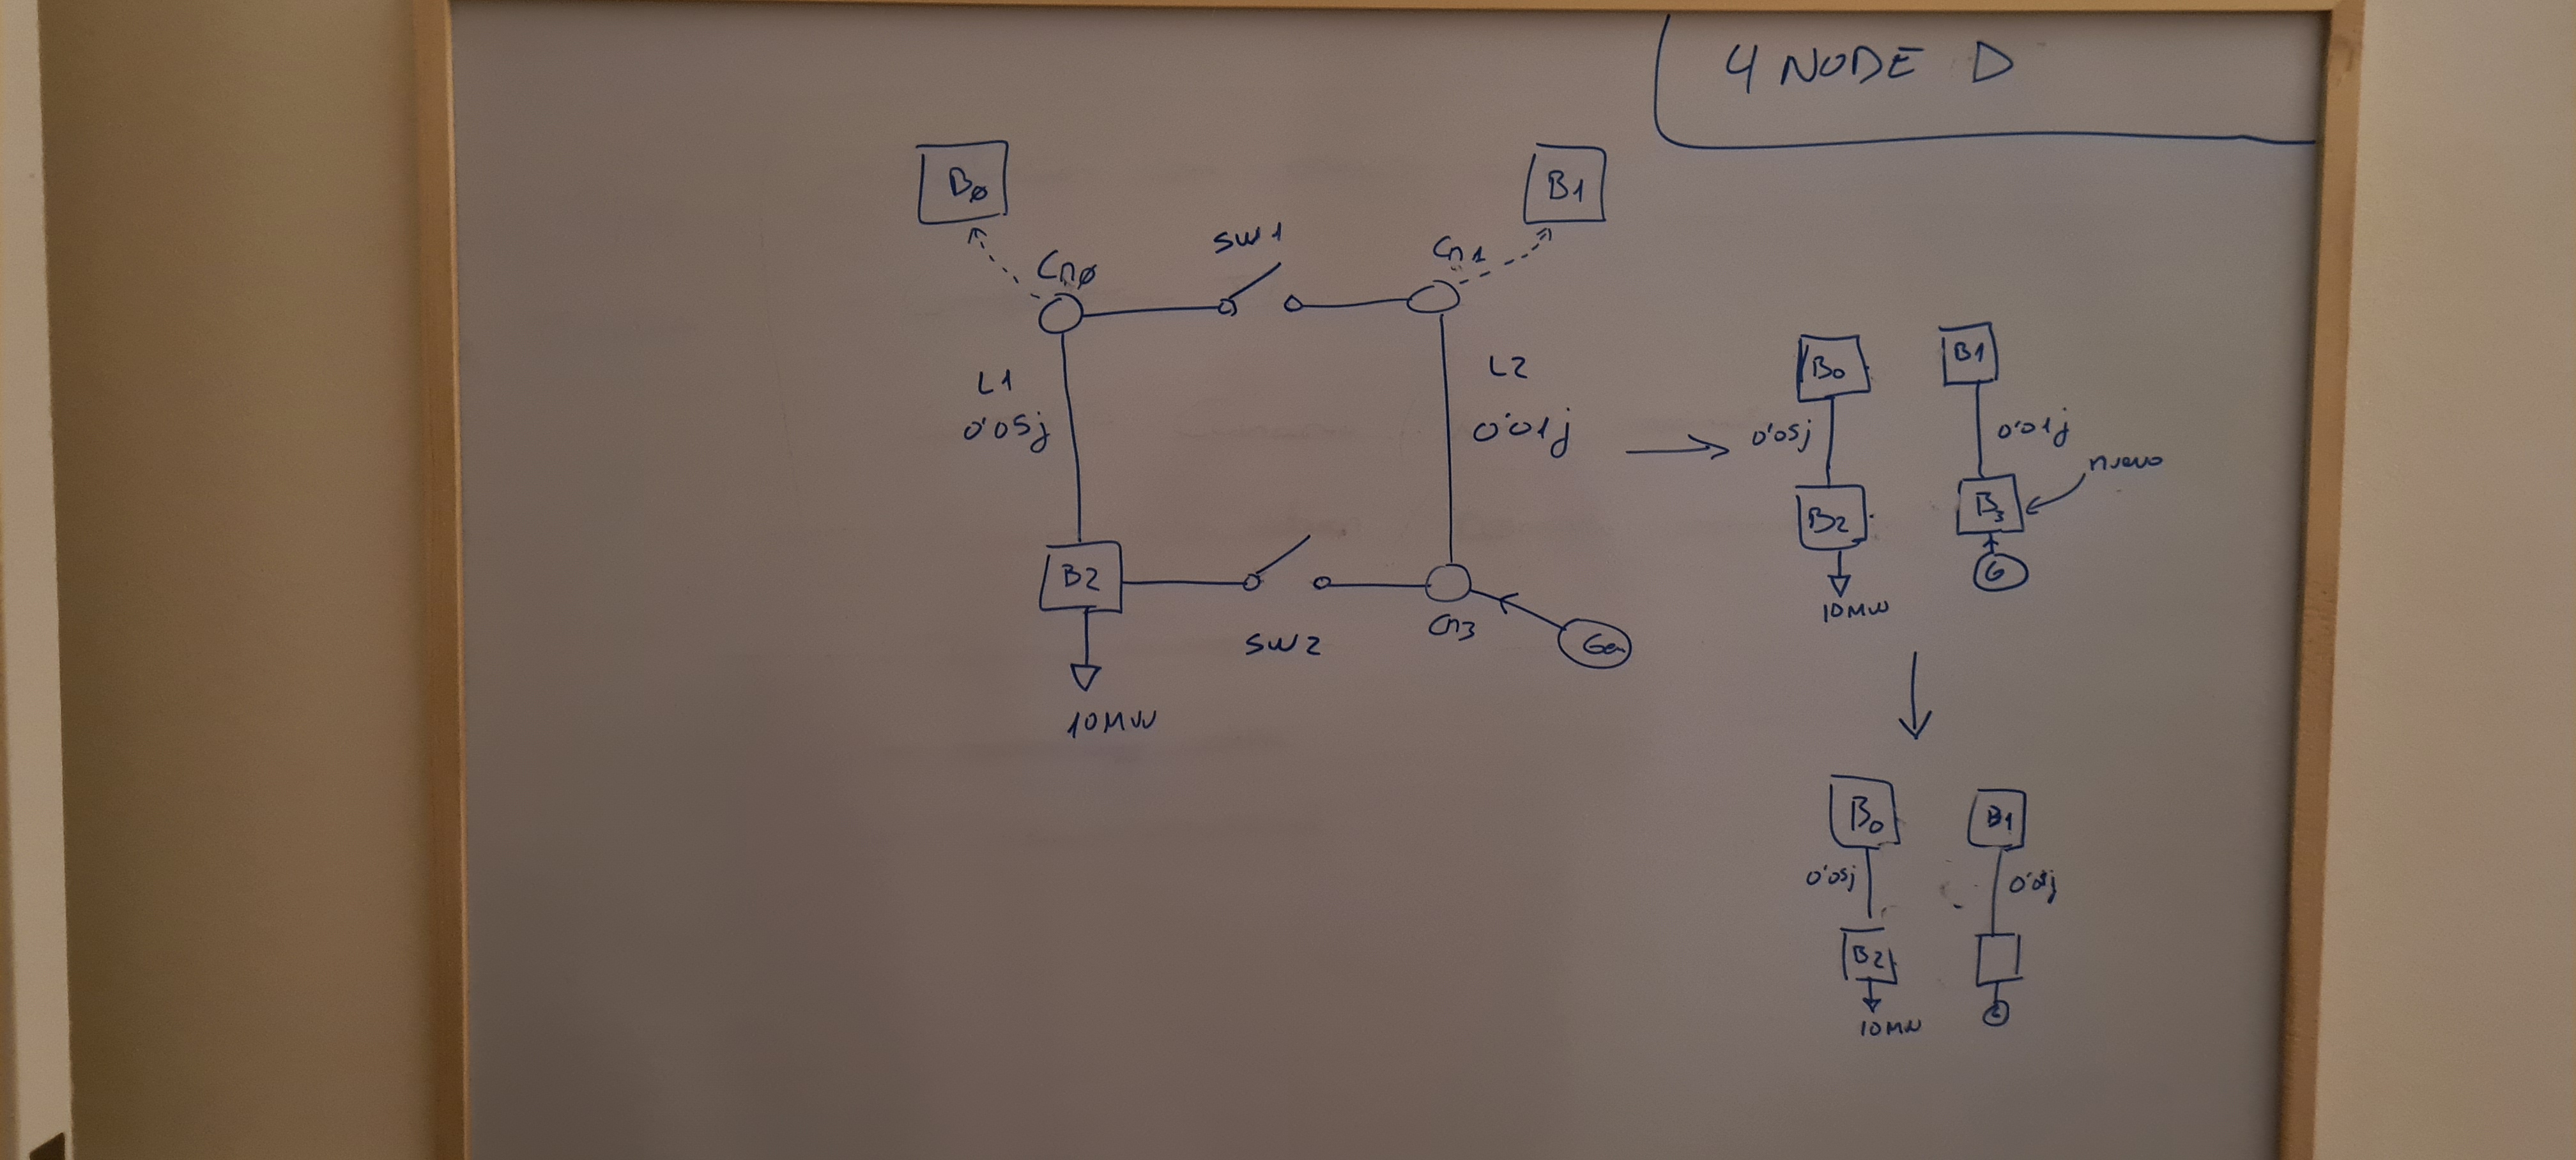 4 NODE D
Bø
B1
SW1
Cnø
Cn1
L1
0'05j
L2
0'01j
B2
SW2
Cn3
Gen
10MW
B0
B1
0'05j
0'01j
nuevo
B2
B3
G
10MW
B0
B1
0'05j
B2
G
10MW